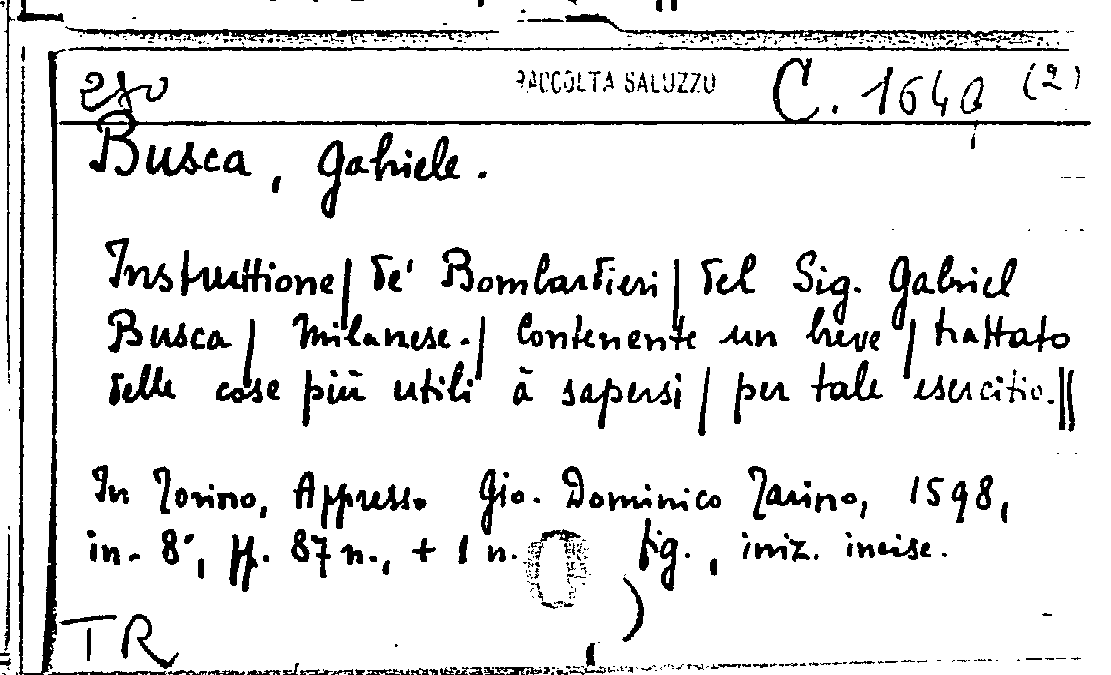 280 RACCOLTA SALUZZO C. 1640 (2)
Busca, Gabriele.
Instruttione/ de' Bombardieri/ del Sig. Gabriel
Busca/ Milanese./ Contenente un breve/ trattato
delle cose più utili à sapersi/ per tale esercitio.||
In Torino, Appresso Gio. Dominico Tarino, 1598,
in-8°, pp. 87 n., + 1 n. fig., iniz. incise.
TR